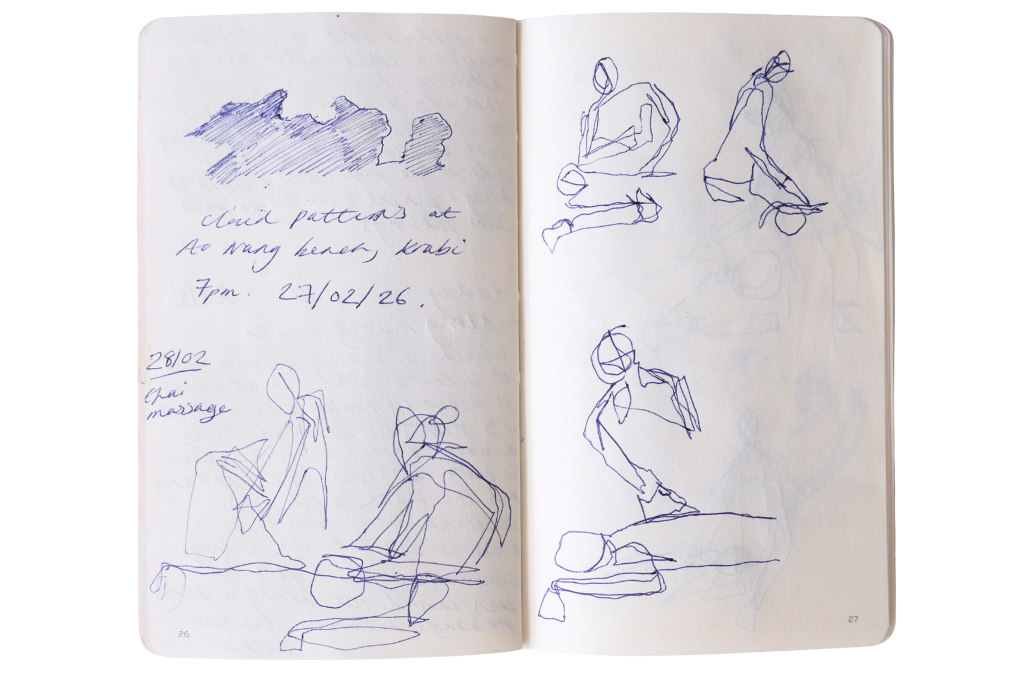 cloud patterns at
Ao Nang beach, Krabi
7pm. 27/02/26.
28/02
thai
massage
26
27